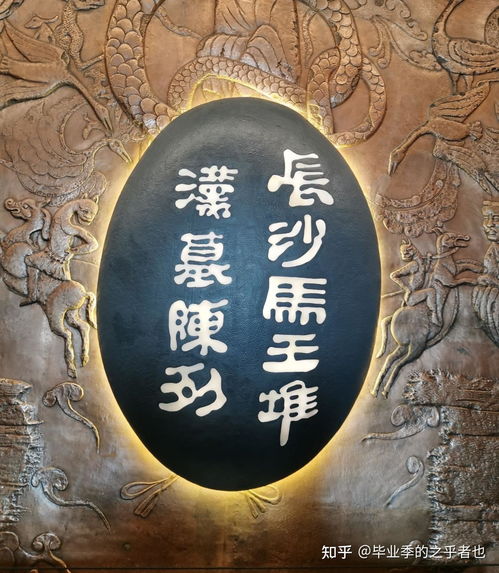 長沙馬王堆
漢墓陳列
知乎 @毕业季的之乎者也